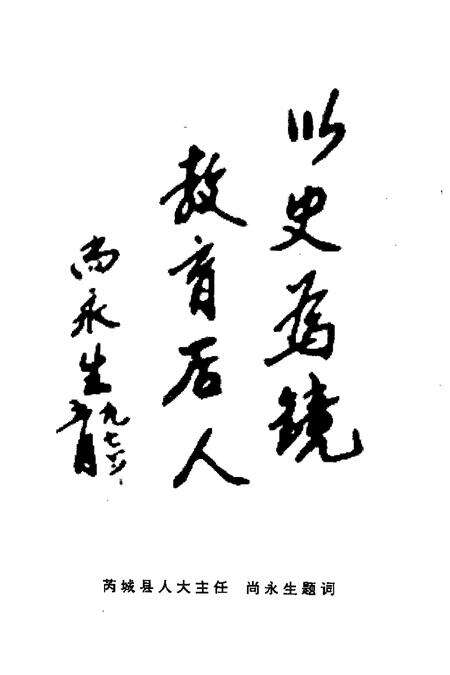 以史为镜
教育后人
尚永生
九七年
五月
芮城县人大主任 尚永生题词